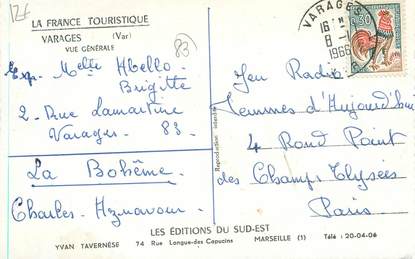 12F
LA FRANCE TOURISTIQUE
VARAGES (Var)
VUE GÉNÉRALE
83
Exp. Melle Abello
Brigitte
2. Rue Lamartine
Varages. 83.
La Bohême.
Charles. Aznavour.
VARAGES
16
8-1
1966
0,30
Jeu Radio
Femmes d'Aujourd'hui
4 Rond Point
des Champs Elysées
Paris.
Reproduction interdite
LES ÉDITIONS DU SUD-EST
YVAN TAVERNÈSE 74 Rue Longue-des Capucins MARSEILLE (1) Télé : 20-04-06